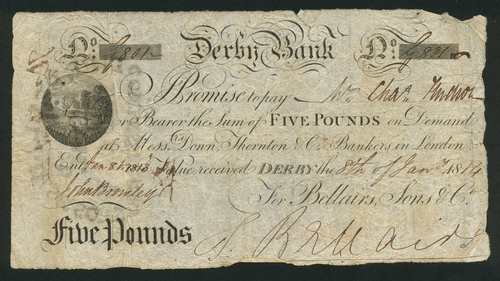 No. 6,801 Derby Bank No. 6,801
I Promise to pay Mr. Chas.
or Bearer the Sum of FIVE POUNDS on Demand
at Mess. Down Thornton & Co. Bankers in London
Entd. Jan. 8th 1813 Value received DERBY the 8th of Jany. 1814
John Bromley For Bellairs, Sons & Co.
Five Pounds J. Bellairs